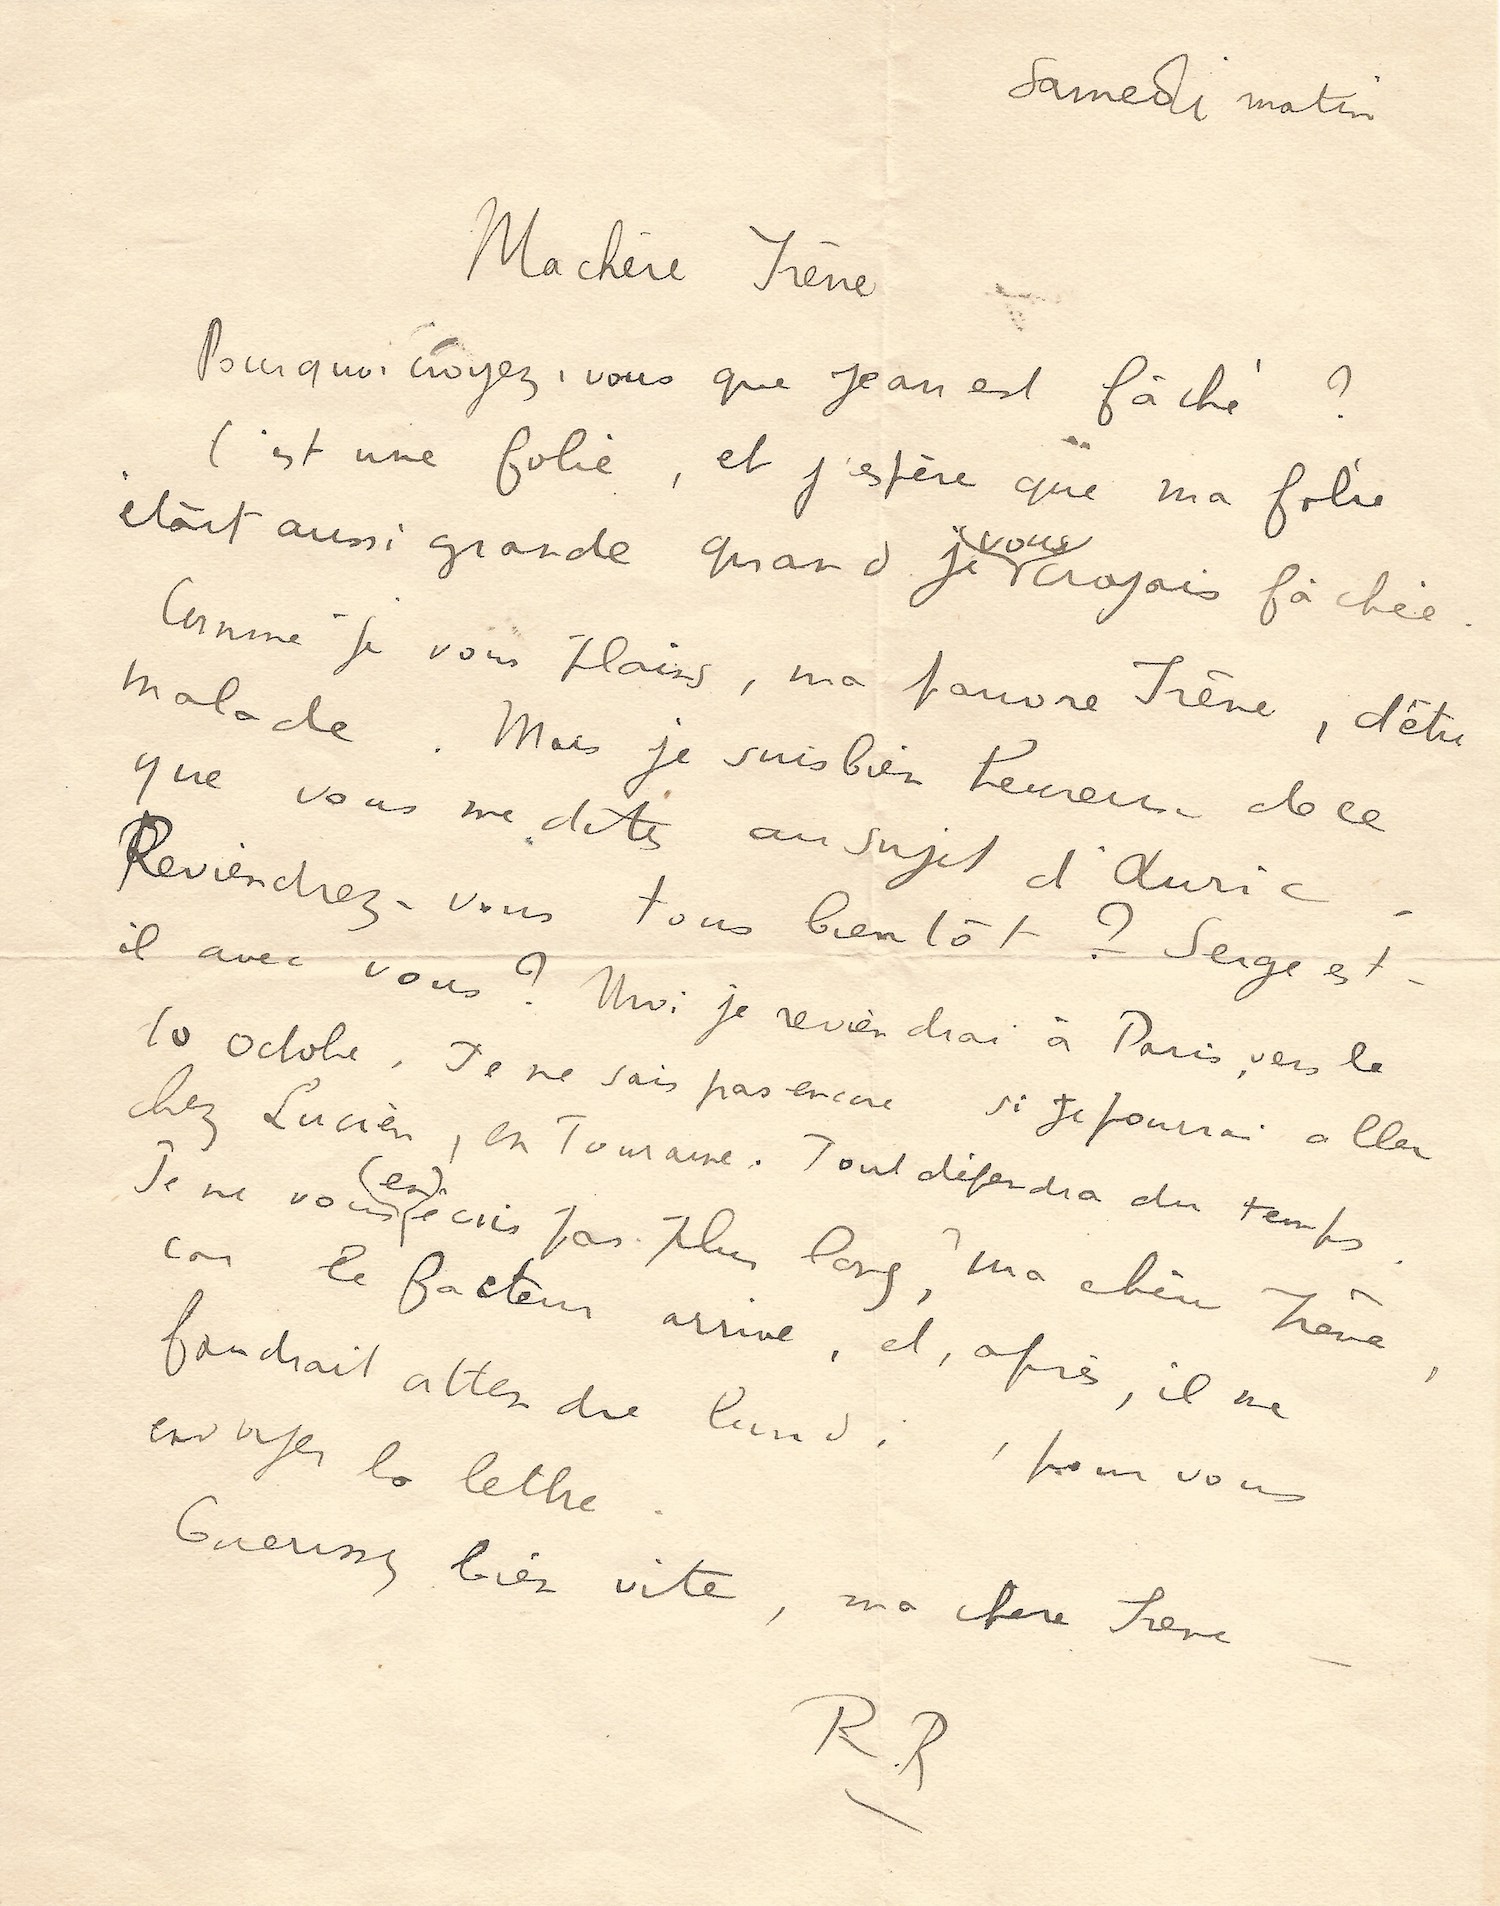 Samedi matin
Ma chère Irène
Pourquoi croyez-vous que Jean est fâché ?
C'est une folie, et j'espère que ma folie
était aussi grande quand je vous croyais fâchée.
Comme je vous plains, ma pauvre Irène, d'être
malade. Mais je suis bien heureux de ce
que vous me dites au sujet d'Auric.
Reviendrez-vous tous bientôt ? Serge est-
il avec vous ? Moi je reviendrai à Paris, vers le
10 octobre. Je ne sais pas encore si je pourrai aller
chez Lucien, en Touraine. Tout dépendra du temps.
Je ne vous (en) écris pas plus long, ma chère Irène,
car le facteur arrive, et, après, il me
faudrait attendre lundi, pour vous
envoyer la lettre.
Guerissez bien vite, ma chere Irene –
R.R